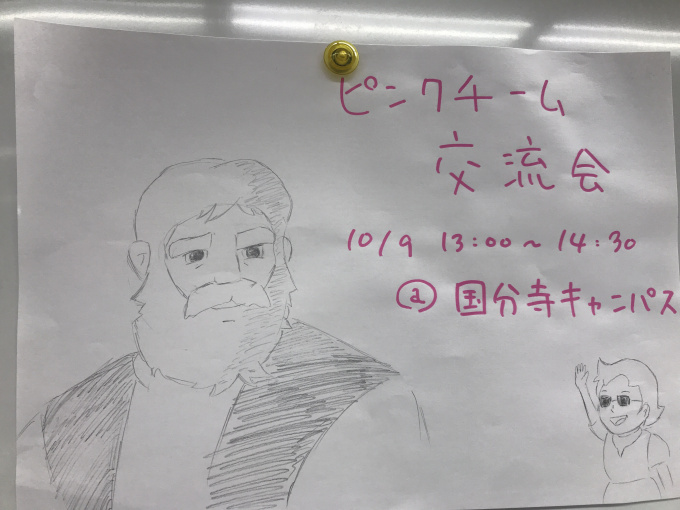 ピンクチーム
交流会
10/9 13:00~14:30
@国分寺キャンパス